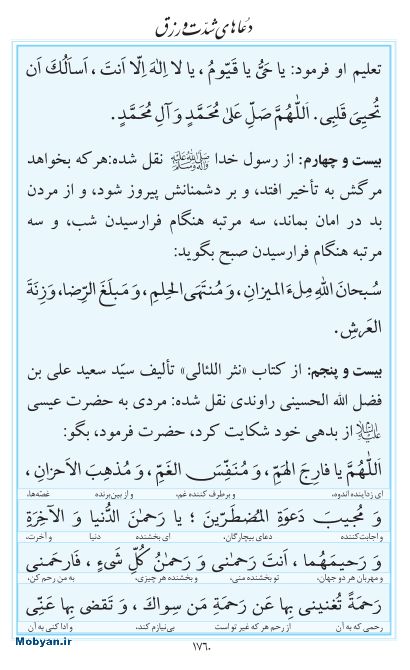 دعاهای شدّت و رزق
تعلیم او فرمود: یا حَیُّ یا قَیّومُ، یا لا اِلهَ اِلّا اَنتَ، اَسأَلُكَ اَن
تُحیِیَ قَلبی. اَللّهُمَّ صَلِّ عَلی مُحَمَّدٍ وَ آلِ مُحَمَّدٍ.
بیست و چهارم: از رسول خدا ﷺ نقل شده: هر که بخواهد
مرگش به تأخیر افتد، و بر دشمنانش پیروز شود، و از مردن
بد در امان بماند، سه مرتبه هنگام فرارسیدن شب، و سه
مرتبه هنگام فرارسیدن صبح بگوید:
سُبحانَ اللهِ مِلءَ المیزانِ، وَ مُنتَهَی الحِلمِ، وَ مَبلَغَ الرِّضا، وَ زِنَةَ
العَرشِ.
بیست و پنجم: از کتاب «نثر اللئالی» تألیف سیّد سعید علی بن
فضل الله الحسینی راوندی نقل شده: مردی به حضرت عیسی
از بدهی خود شکایت کرد، حضرت فرمود، بگو:
اَللّهُمَّ یا فارِجَ الهَمِّ، وَ مُنَفِّسَ الغَمِّ، وَ مُذهِبَ الاَحزانِ،
ای زداینده اندوه، و برطرف کننده غم، و از بین برنده غصّه‌ها،
وَ مُجیبَ دَعوَةِ المُضطَرّینَ؛ یا رَحمنَ الدُّنیا وَ الآخِرَةِ
و اجابت کننده دعای بیچارگان، ای بخشنده دنیا و آخرت،
وَ رَحیمَهُما، اَنتَ رَحمنی وَ رَحمنُ كُلِّ شَیءٍ، فَارحَمنی
و مهربان هر دو جهان، تو بخشنده منی، و بخشنده هر چیزی، به من رحم کن،
رَحمَةً تُغنینی بِها عَن رَحمَةِ مَن سِواكَ، وَ تَقضی بِها عَنّی
رحمی که به آن از رحم هر که غیر تو است بی‌نیازم کند، و ادا کنی به آن
١٧٦٠
Mobyan.ir